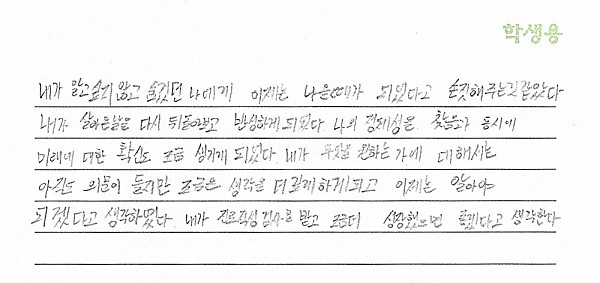 학생용
내가 알고싶지 않고 숨겼던 나에게 이제는 나올때가 되었다고 손짓해주는것같았다
내가 살아온날을 다시 뒤돌아보고 반성하게되었다 나의 정체성을 찾음과 동시에
미래에 대한 확신도 조금 생기게 되었다. 내가 무엇을 원하는 가에 대해서는
아직도 의문이 들지만 조금은 생각을 더 하게되고 이제는 알아야
되겠다고 생각하였다. 내가 진로적성검사를 받고 조금더 성장했으면 좋겠다고 생각한다